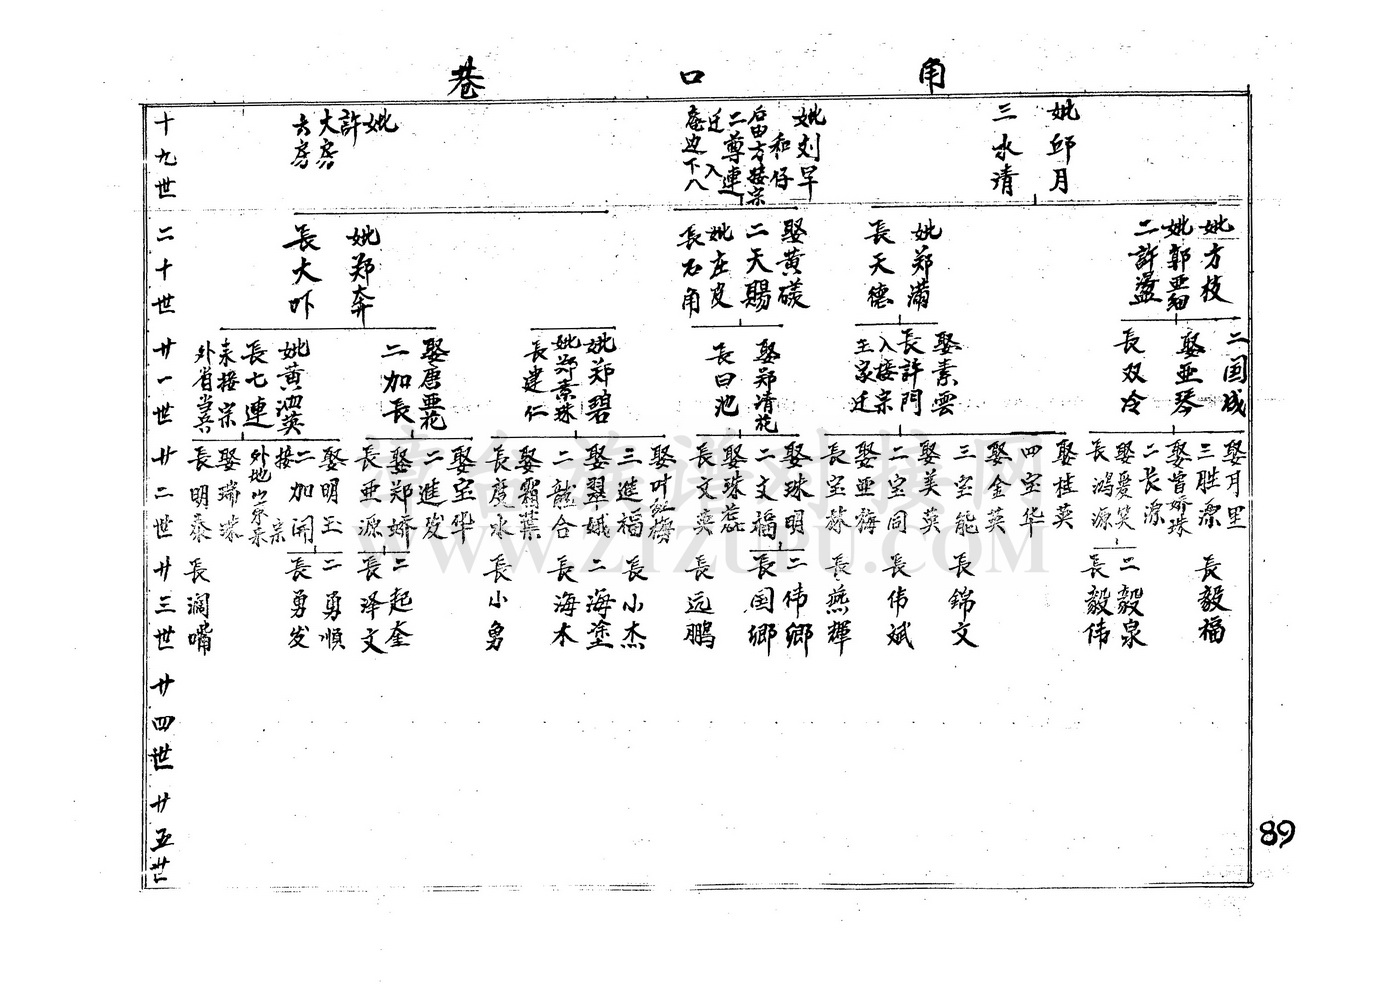 角口巷
十九世
妣邱月
三水清
妣刘早
和仔
后由方接宗
二尊連
迁入
庵边下八
妣
許
大房
六房
二十世
妣方枝
妣郭亜細
二許盪
妣郑滿
長天德
娶黄礒
二天賜
妣庄皮
長石角
妣郑奔
長大吓
廿一世
二国成
娶亜琴
長双冷
娶素雲
長許門
入接宗
王家迁
娶郑清花
長曰池
妣郑碧
妣郑素珠
長建仁
娶唐亜花
二加長
妣黄泗英
長七連
未接宗
外省当兵
廿二世
娶月里
三胜漂
娶曾娇珠
二長漂
娶愛笑
長鴻源
娶桂英
四宝华
娶金英
三宝能
娶美英
二宝同
娶亜梅
長宝林
娶珠明
二文福
娶珠蕊
長文英
娶叶红梅
三進福
娶翠娥
二龍合
娶霜葉
長慶水
娶宝华
二進发
娶郑娇
長亜源
娶明玉
二加開
接宗
外地以來未
娶瑞珠
長明泰
廿三世
長毅福
二毅泉
長毅伟
長錦文
長伟斌
長燕輝
二伟鄉
長国鄉
長远鹏
長小杰
二海塗
長海木
長小勇
二起奎
長泽文
二勇順
長勇发
長濶嘴
廿四世
廿五世
89
WWW.ZTZUPU.COM